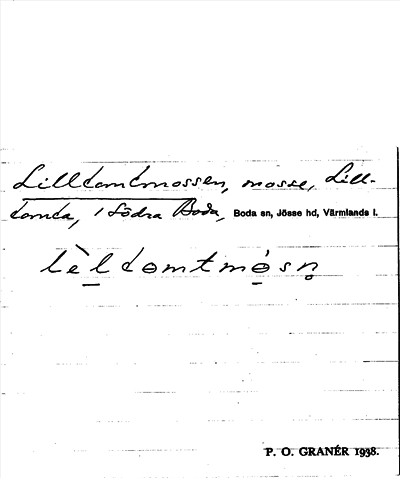 Lilltomtmossen, mosse, Lill-
tomta, i Södra Boda, Boda sn, Jösse hd, Värmlands l.
lèltomtmósn̥
P. O. GRANÉR 1938.